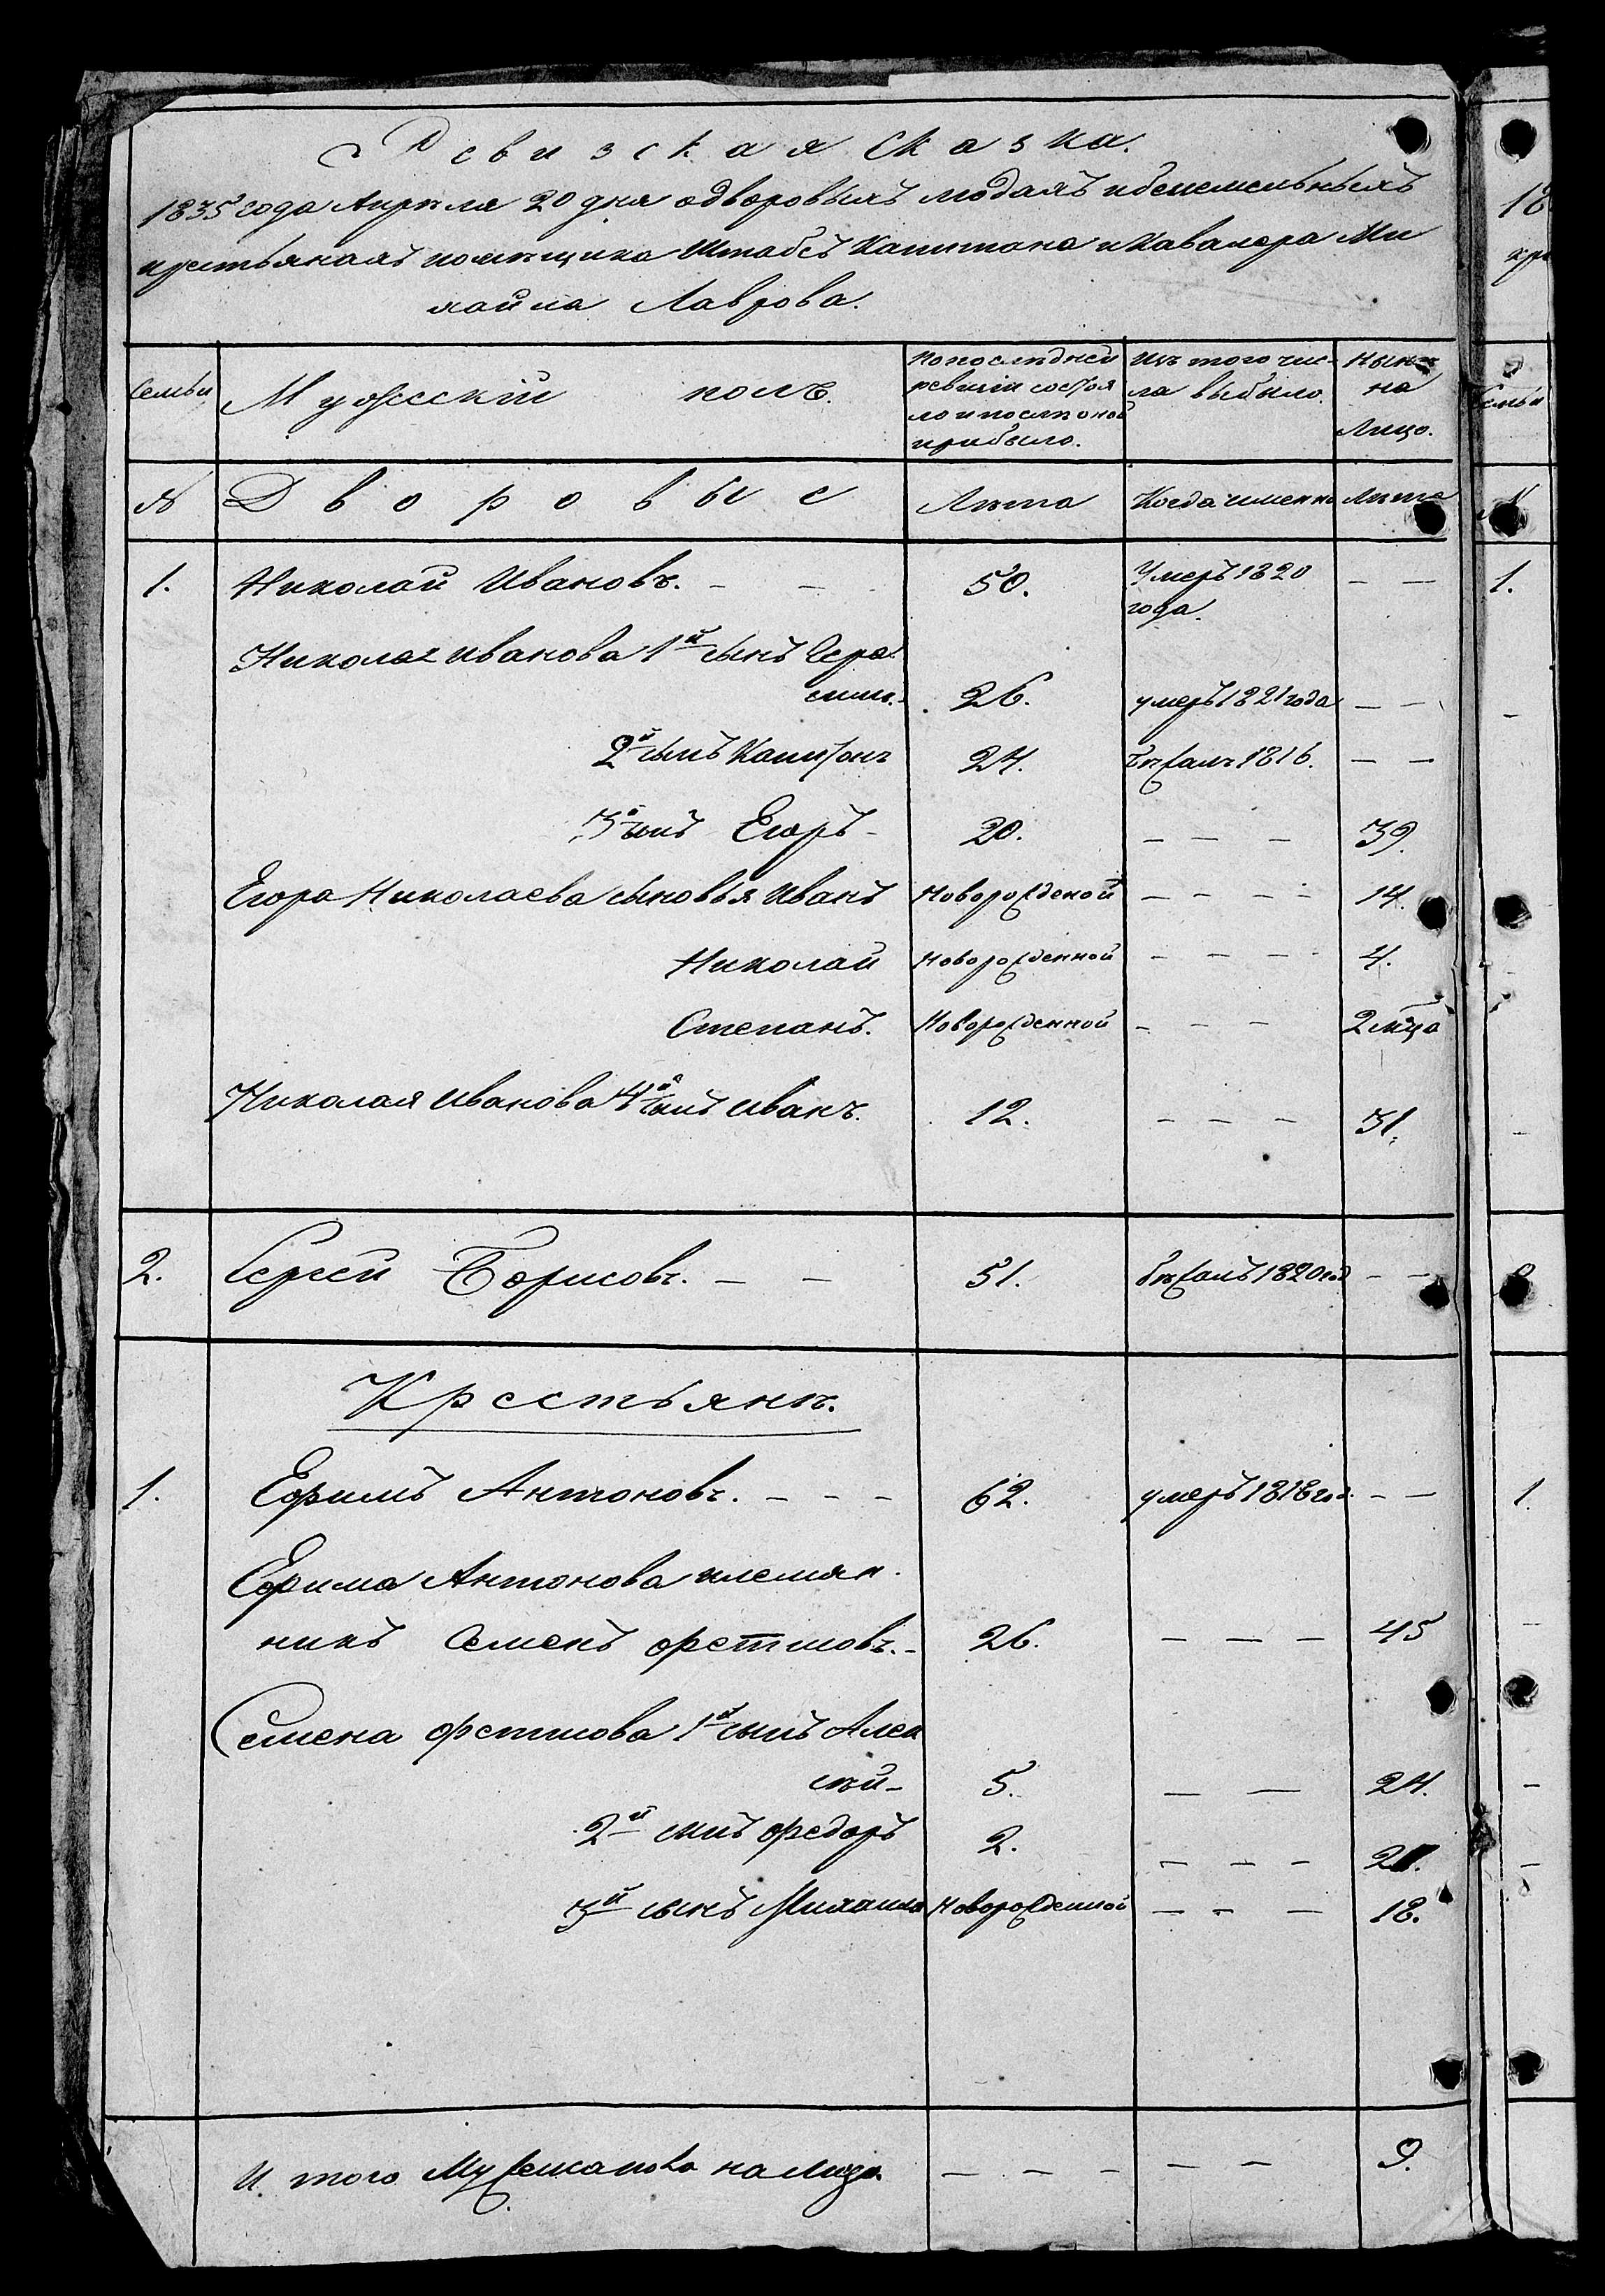 Ревизская Сказка.
1835 года Апрѣля 20 дня одворовыхъ людяхъ ибеземельныхъ
крестьянахъ помѣщика Штабсъ Капитана и Кавалера Ми
хаила Лаврова.
Семьи Мужескій полъ. Попослѣдней ревизіи состоя ло и послѣ оной прибыло. Изъ того чис- ла выбыло. Нынѣ на Лицо.
№ Дворовые Лѣта Когда именно Лѣта
1. Николай Ивановъ. — — 50. Умеръ 1820 года. — —
Николая Иванова 1й сынъ Гера
симъ. 26. умеръ 1821 года — —
2й сынъ Капитонъ 24. бѣжалъ 1816. — —
3й сынъ Егоръ — 20. — — — 39.
Егора Николаева сыновья Иванъ Новорожденой — — — — 14.
Николай Новорожденной — — — — 4.
Степанъ. Новорожденной — — — 2 мца
Николая Иванова 4й сынъ Иванъ. 12. — — — 31.
2. Сергей Борисовъ. — — 51. бѣжалъ 1820 год — —
Крестьянѣ.
1. Ефимъ Антоновъ. — — — 62. умеръ 1818 год. — —
Ефима Антонова племян
никъ Семенъ Фетисовъ. — 26. — — — 45
Семена Фетисова 1й сынъ Алек
сѣй — 5. — — 24.
2й сынъ Федоръ 2. — — — 21.
3й сынъ Михаила Новорожденной — — — 18.
И того Мужескаполо налицо. — — — — — 9.
18
кре
Семьи
№
1.
2
1.